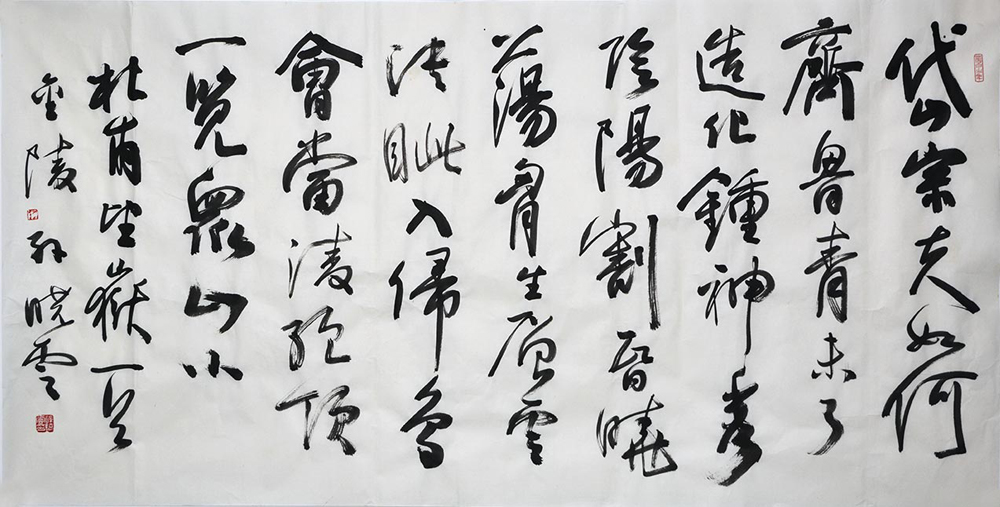 岱宗夫如何
齊魯青未了
造化鍾神秀
陰陽割昏曉
蕩胷生層雲
決眦入歸鳥
會當淩絕頂
一覽衆山小
杜甫望嶽一首
金陵孫曉雲